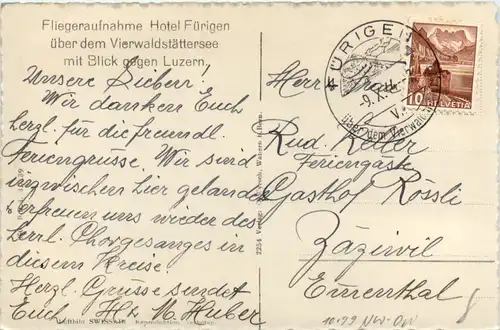 Fliegeraufnahme Hotel Fürigen
über dem Vierwaldstättersee
mit Blick gegen Luzern.
Unsere Lieben!
Wir danken Euch
herzl. für die freundl.
Feriengrüsse. Wir sind
inzwischen hier gelandet
& erfreuen uns wieder des
herrl. Chorgesanges in
diesem Kreise.
Herzl. Grüsse sendet
Euch
M. Huber
FÜRIGEN
über dem Vierwald
10 HELVETIA
Herr
Rud. Keller
Feriengäste
Gasthof Rössli
Zäziwil
Emmental
2254
SWISSAIR
10.99 NW-OW